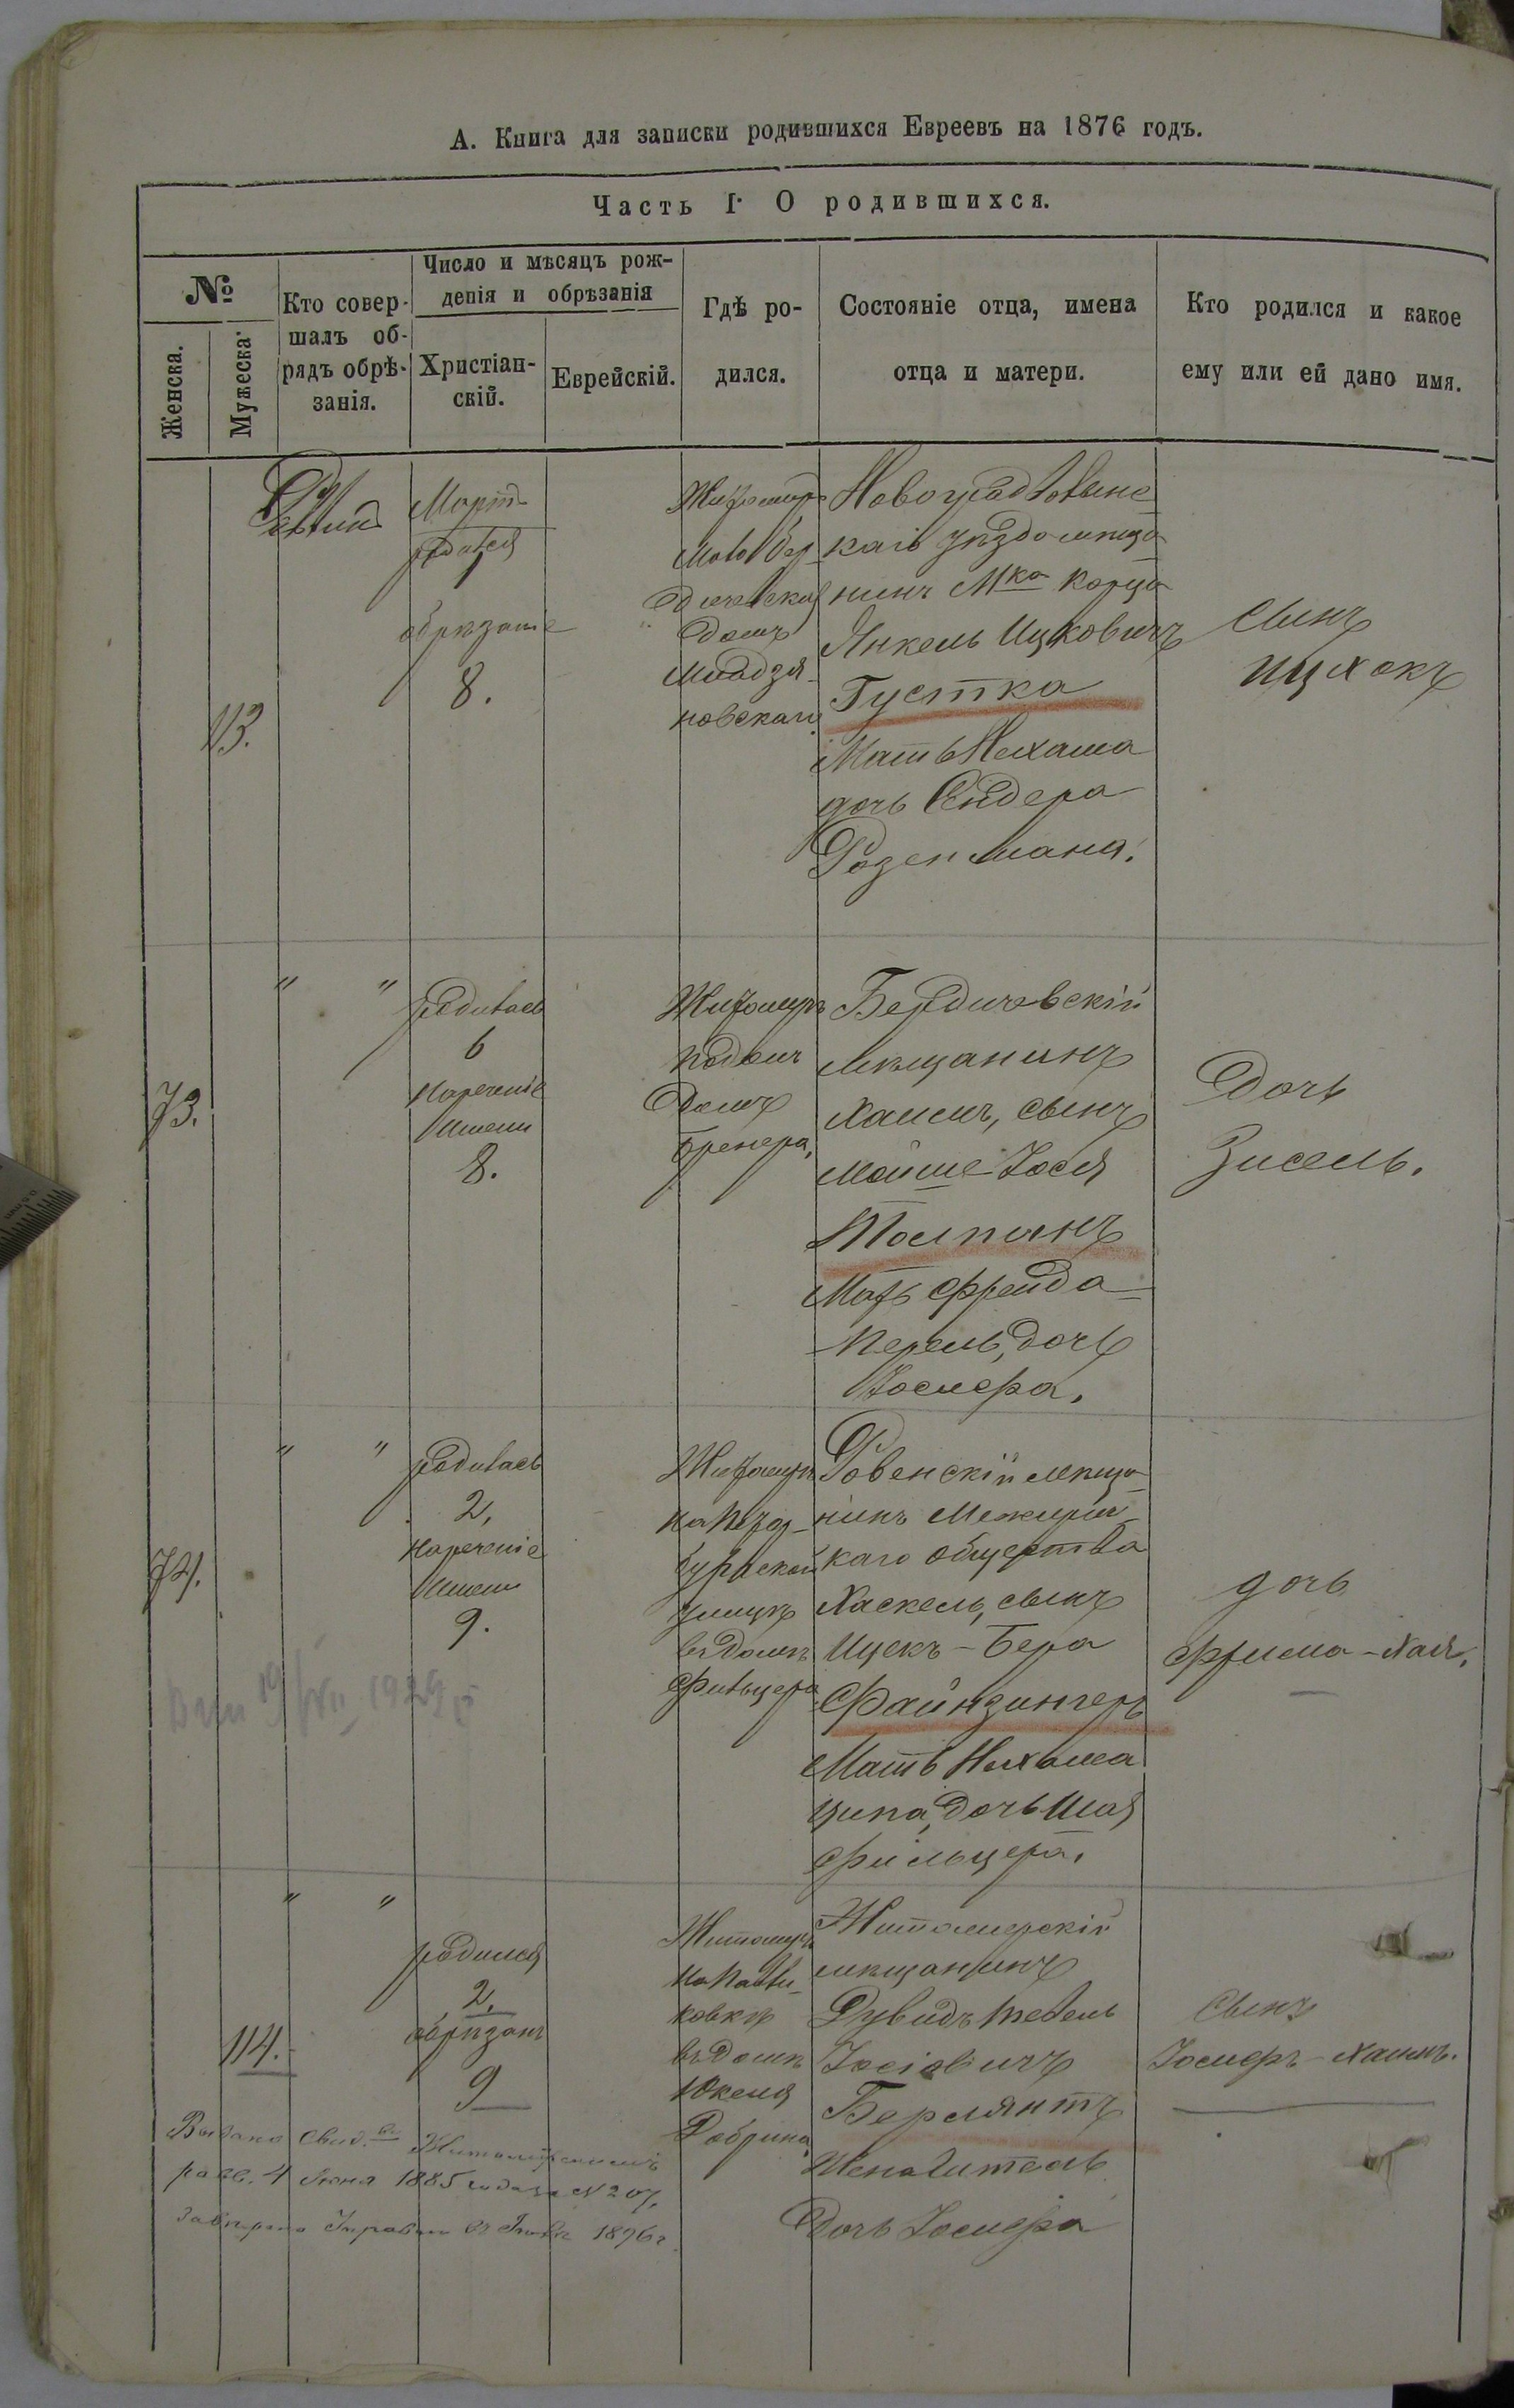 А. Книга для записки родившихся Евреевъ на 1876 годъ.
Часть I. О родившихся.
№
Женска.
Мужеска.
Кто совер-
шалъ об-
рядъ обрѣ-
занія.
Число и мѣсяцъ рож-
денія и обрѣзанія
Христіан-
скій.
Еврейскій.
Гдѣ ро-
дился.
Состояніе отца, имена
отца и матери.
Кто родился и какое
ему или ей дано имя.
113.
Мартъ
родился
1
обрѣзаніе
8.
Житомиръ
Мало Бер-
дичевская
домъ
новскаго
Новоградволынс
каго уѣзда мѣща
нинъ Мка Корца
Янкель Ицковичъ
Густка
Мать Нехама
дочь Сендера
Розенмана.
сынъ
Ицхокъ
73.
" "
родилась
6
нареченіе
имени
8.
Житомиръ
подолъ
домъ
Бренера,
Бердичевскій
мѣщанинъ
Хаимъ, сынъ
Мойше-Іося
Толпинъ
Мать Фрейда-
Перель, дочь
Іосифа.
Дочь
Зисель.
74.
" "
родилась
2,
нареченіе
имени
9.
Житомиръ
на Петер-
бургской
улицѣ
въ домѣ
Фильцера
Ровенскій мѣща
нинъ Межирич
каго общества
Хаскель, сынъ
Ицекъ-Бера
Файнзингеръ
Мать Нехама
Ципа, дочь Шая
Фильцера.
дочь
Фрима-Хая.
19/VII 1929
114.
" "
родился
2,
обрѣзанъ
9
Житомиръ
на Павли-
ковкѣ
въ домѣ
Юкеля
Добрина
Житомирскій
мѣщанинъ
Дувидъ Тевель
Іосіовичъ
Берлянтъ
Жена Гитель
Дочь Іосифа
Сынъ
Іосифъ-Хаимъ.
Выдано свид. Житомирскимъ
равв. 4 Июня 1885 года за № 207.
1896 г.